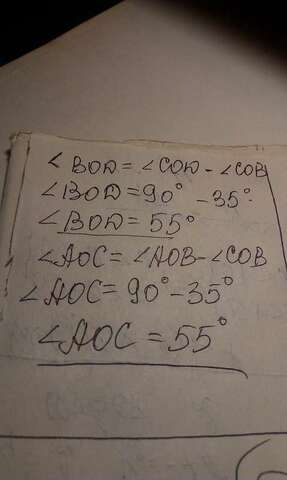 ∠BOD = ∠COD - ∠COB
∠BOD = 90° - 35°
∠BOD = 55°
∠AOC = ∠AOB - ∠COB
∠AOC = 90° - 35°
∠AOC = 55°